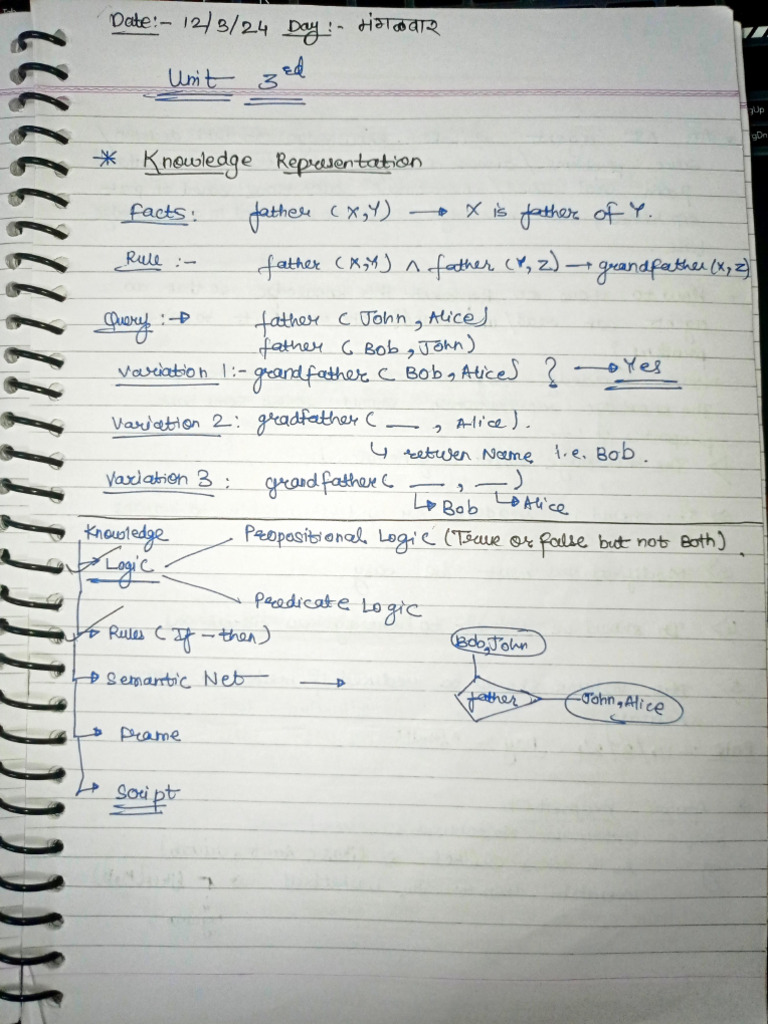 Date:- 12/3/24 Day:- मंगळवार
Unit 3rd
* Knowledge Representation
facts: father (X,Y) → X is father of Y.
Rule :- father (X,Y) ∧ father (Y, Z) → grandfather (X, Z)
Query :→ father ( John , Alice)
father ( Bob , John)
Variation 1:- grandfather ( Bob , Alice) ? → Yes
Variation 2: gradfather ( __ , Alice).
↳ return Name i.e. Bob.
Variation 3 : grandfather ( __ , __ )
↳ Bob ↳ Alice
Knowledge
→ Logic
Propositional Logic (True or false but not Both).
Predicate Logic
→ Rules ( If - then)
→ Semantic Net →
Bob, John
father
John, Alice
→ Frame
→ Script